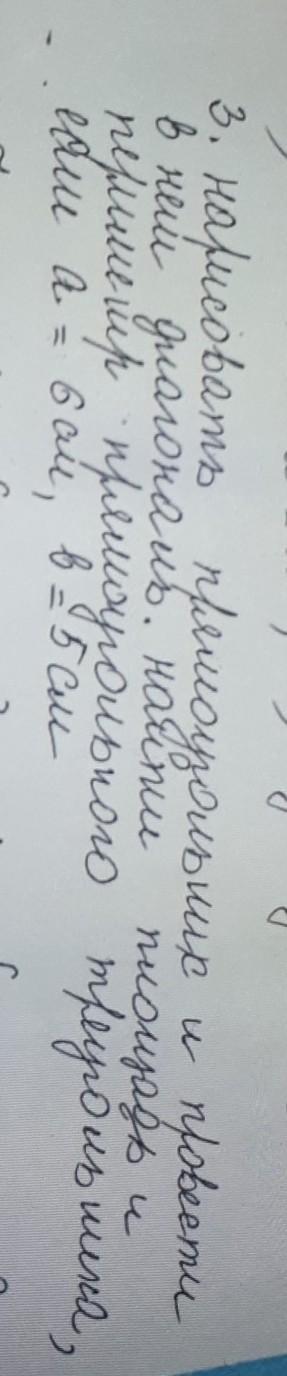 3. нарисовать прямоугольник и провести
в нем диагональ. найти площадь и
периметр прямоугольного треугольника,
если a = 6 см, в = 5 см